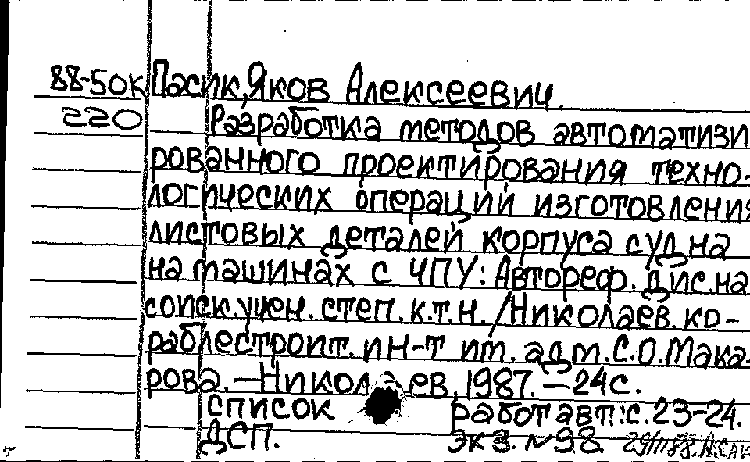 88-50к Пасик, Яков Алексеевич.
220 Разработка методов автоматизи
рованного проектирования техно-
логических операций изготовления
листовых деталей корпуса судна
на машинах с ЧПУ: Автореф. дис. на
соиск. учен. степ. к.т.н. / Николаев. ко-
раблестроит. ин-т им. адм. С.О. Мака-
рова. – Николаев, 1987. – 24 с.
список работ авт.: с. 23-24.
ДСП. экз. №98